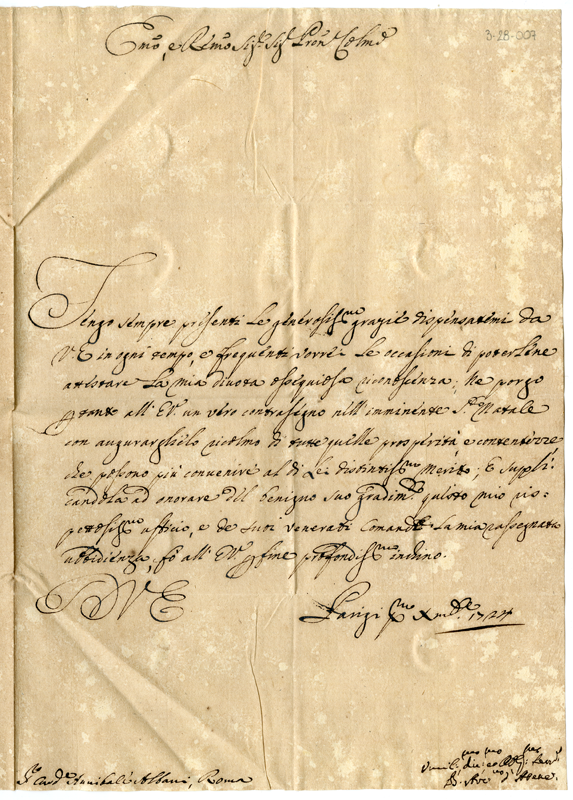 3-28-007
Emo, e Rmo Sigr Sigr Pron Colmo
Tengo sempre presenti le generosissme grazie dispensatemi da
V.E. in ogni tempo, e frequenti vorrei le occasioni di potersene
attestare la mia divota ossequiosa riconoscenza; Ne porgo
ptanto all' EV. un vero contrasegno nell' imminente S. Natale
con augurarghelo ricolmo di tutte quelle prosperità, e contentezze
che possono più convenire al di Lei distintissmo Merito; E suppli-
candola ad onorare del benigno suo gradimto questo mio ris-
pettosissmo ufficio, e de suoi venerati Comandi la mia rassegnata
ubbidienza, fò all' EV. p fine profondissmo inchino.
D V E
Parigi Xmbre 1724
Sr Card. Annibale Albani, Roma
Umilmo divmo